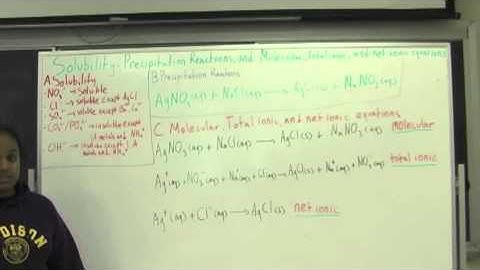 Solubility, Precipitation Reactions, and Molecular, total ionic, and net ionic equations
A. Solubility
NO₃⁻ → soluble
Cl⁻ → soluble except AgCl
SO₄²⁻ → soluble except
CO₃²⁻/PO₄³⁻ → insoluble except 1A metals and NH₄⁺
OH⁻ → insoluble except 1A metals and NH₄⁺
B Precipitation Reactions
AgNO₃(aq) + NaCl(aq) → AgCl(s) + NaNO₃(aq)
C. Molecular, Total ionic, and net ionic equations
AgNO₃(aq) + NaCl(aq) → AgCl(s) + NaNO₃(aq) molecular
Ag⁺(aq) + NO₃⁻(aq) + Na⁺(aq) + Cl⁻(aq) → AgCl(s) + Na⁺(aq) + NO₃⁻(aq) total ionic
Ag⁺(aq) + Cl⁻(aq) → AgCl(s) net ionic
DISON